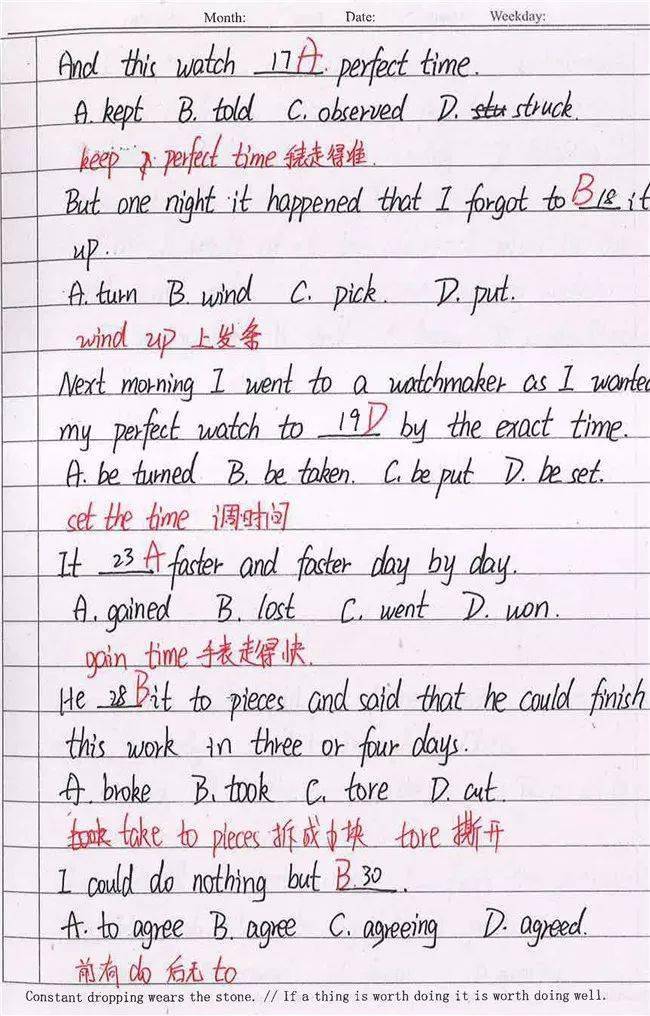 Month: Date: Weekday:
And this watch 17 A perfect time.
A. kept B. told C. observed D. stu struck.
keep perfect time 手表走得准.
But one night it happened that I forgot to B 18 it
up.
A. turn B. wind C. pick. D. put.
wind up 上发条
Next morning I went to a watchmaker as I wanted
my perfect watch to 19 D by the exact time.
A. be turned B. be taken. C. be put D. be set.
set the time 调时间
It 23 A faster and faster day by day.
A. gained B. lost C. went D. won.
gain time 手表走得快.
He 28 B it to pieces and said that he could finish
this work in three or four days.
A. broke B. took C. tore D. cut.
took take to pieces 拆成小块 tore 撕开
I could do nothing but B. 30 .
A. to agree B. agree C. agreeing D. agreed.
前有 do 后无 to
Constant dropping wears the stone. // If a thing is worth doing it is worth doing well.